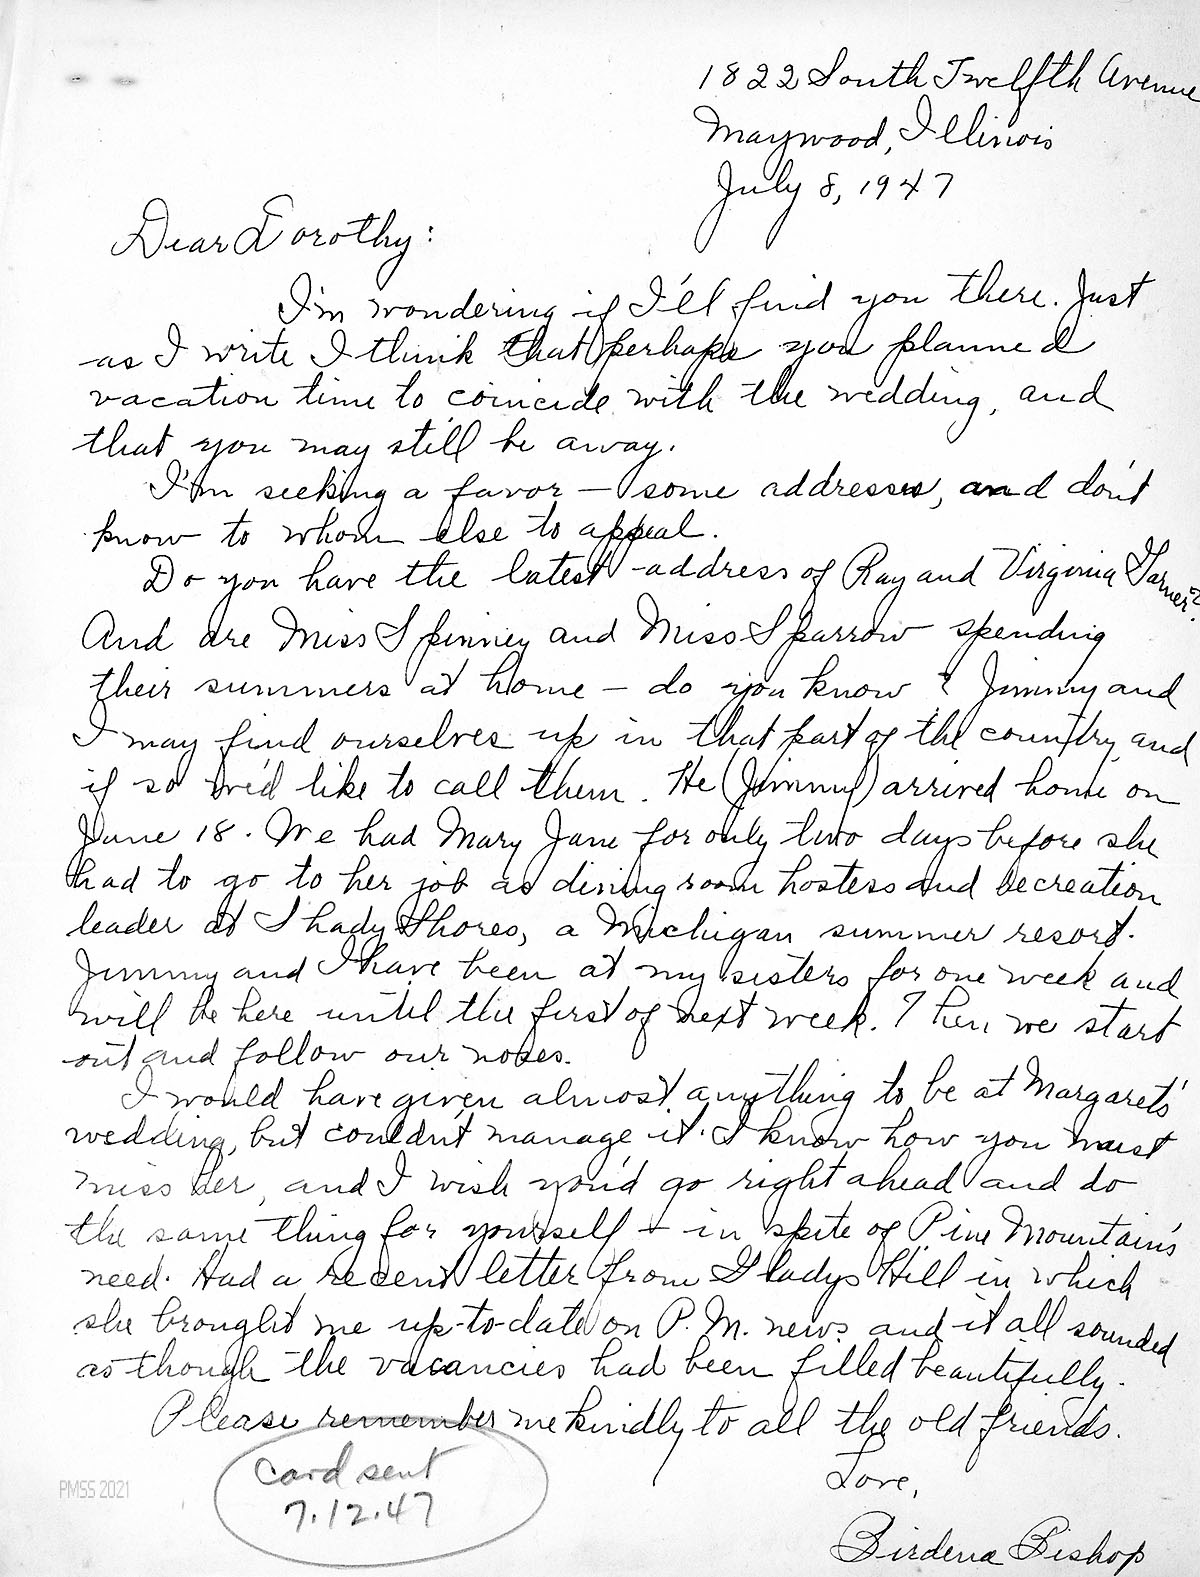 1822 South Twelfth Avenue
Maywood, Illinois
July 8, 1947
Dear Dorothy:
I'm wondering if I'll find you there. Just
as I write I think that perhaps you planned
vacation time to coincide with the wedding, and
that you may still be away.
I'm seeking a favor — some addresses, and don't
know to whom else to appeal.
Do you have the latest address of Ray and Virginia Garner?
And are Miss Spinney and Miss Sparrow spending
their summers at home — do you know? Jimmy and
I may find ourselves up in that part of the country, and
if so we'd like to call them. He (Jimmy) arrived home on
June 18. We had Mary Jane for only two days before she
had to go to her job as dining room hostess and recreation
leader at Shady Shores, a Michigan summer resort.
Jimmy and I have been at my sisters for one week and
will be here until the first of next week. Then we start
out and follow our noses.
I would have given almost anything to be at Margarets'
wedding, but couldn't manage it. I know how you must
miss her, and I wish you'd go right ahead and do
the same thing for yourself — in spite of Pine Mountain's
need. Had a recent letter from Gladys Hill in which
she brought me up-to-date on P. M. news and it all sounded
as though the vacancies had been filled beautifully.
Please remember me kindly to all the old friends.
Love,
Birdena Bishop
card sent
7.12.47
PMSS 2021